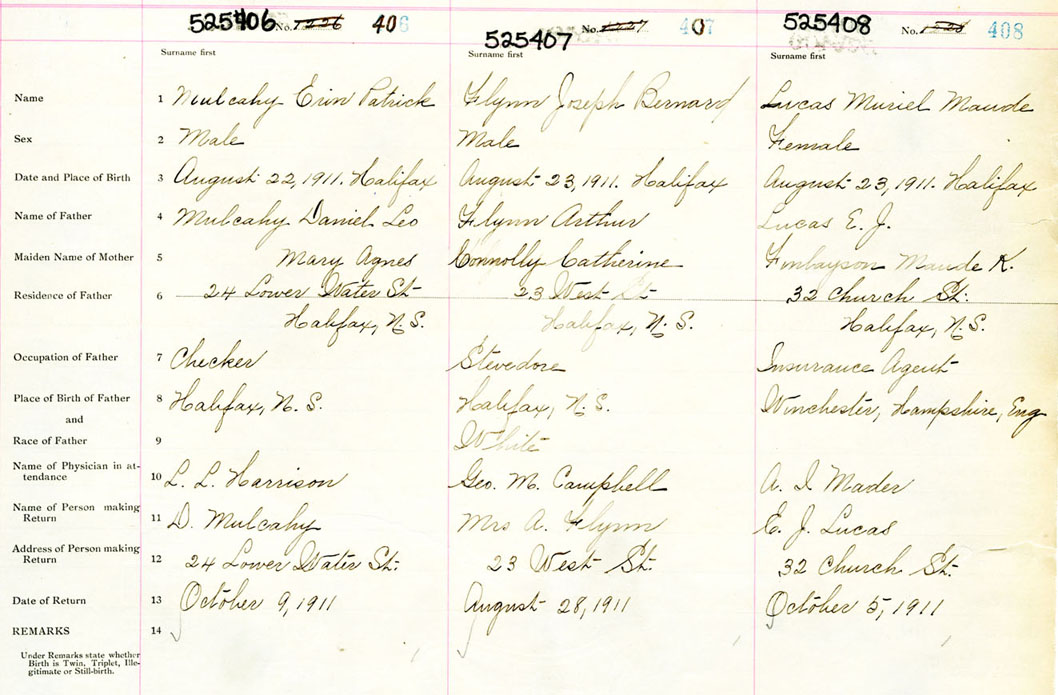 525406 No. 1226 406
525407 No. 1227 407
525408 No. 1228 408
Surname first Surname first Surname first
Name 1 Mulcahy Erin Patrick Flynn Joseph Bernard Lucas Muriel Maude
Sex 2 Male Male Female
Date and Place of Birth 3 August 22, 1911. Halifax August 23, 1911. Halifax August 23, 1911. Halifax
Name of Father 4 Mulcahy Daniel Leo Flynn Arthur Lucas E. J.
Maiden Name of Mother 5 Mary Agnes Connolly Catherine Finlayson Maude K.
Residence of Father 6 24 Lower Water St 23 West St 32 Church St.
Halifax, N.S. Halifax, N.S. Halifax, N.S.
Occupation of Father 7 Checker Stevedore Insurance Agent
Place of Birth of Father 8 Halifax, N.S. Halifax, N.S. Winchester, Hampshire, Eng
and
Race of Father 9 White
Name of Physician in at-
tendance 10 L. L. Harrison Geo. M. Campbell A. I Mader
Name of Person making
Return 11 D. Mulcahy Mrs A. Flynn E. J. Lucas
Address of Person making
Return 12 24 Lower Water St. 23 West St. 32 Church St.
Date of Return 13 October 9, 1911 August 28, 1911 October 5, 1911
REMARKS 14
Under Remarks state whether
Birth is Twin, Triplet, Ille-
gitimate or Still-birth.